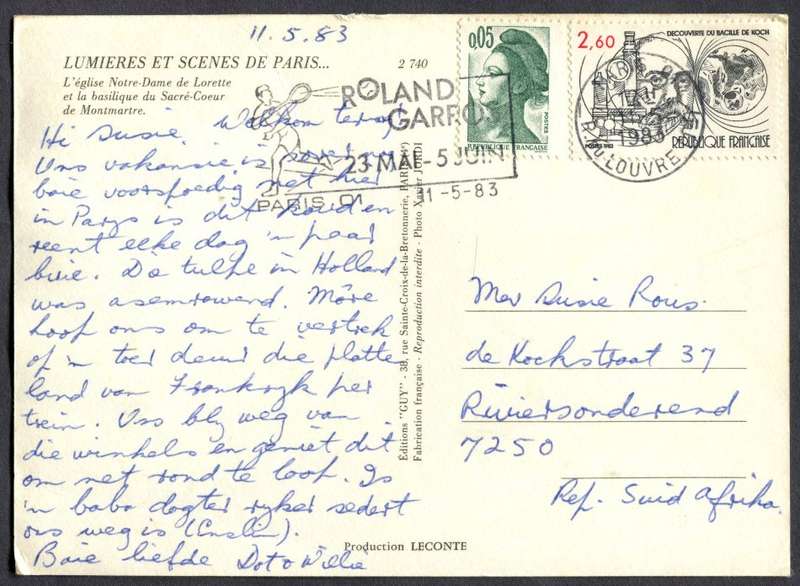 11.5.83
LUMIERES ET SCENES DE PARIS... 2 740
L'église Notre-Dame de Lorette
et la basilique du Sacré-Coeur
de Montmartre.
Hi Susie. Welkom terug!
Uns vakansie is sover
baie voorspoedig net hier
in Parys is dit koud en
reent elke dag 'n paar
buie. Die tulpe in Holland
was asemrowend. Môre
hoop ons om te vertrek
op 'n toer deur die platte
land van Frankryk per
trein. Ons bly weg van
die winkels en geniet dit
om net rond te loop. Is
'n baba dogter ryker sedert
ons weg is (Emslin).
Baie liefde Dot & Willie
ROLAND
GARROS
23 MAI - 5 JUIN
PARIS 01
11-5-83
0,05
REPUBLIQUE FRANÇAISE
POSTES
2,60
DECOUVERTE DU BACILLE DE KOCH
REPUBLIQUE FRANÇAISE
POSTES 1982
PARIS
1983
R. DU LOUVRE
Editions "GUY" - 38, rue Sainte-Croix-de-la-Bretonnerie, PARIS
Fabrication française - Reproduction interdite - Photo Xavier
Mev Susie Rous.
de Kockstraat 37
Riviersonderend
7250
Rep. Suid Afrika.
Production LECONTE